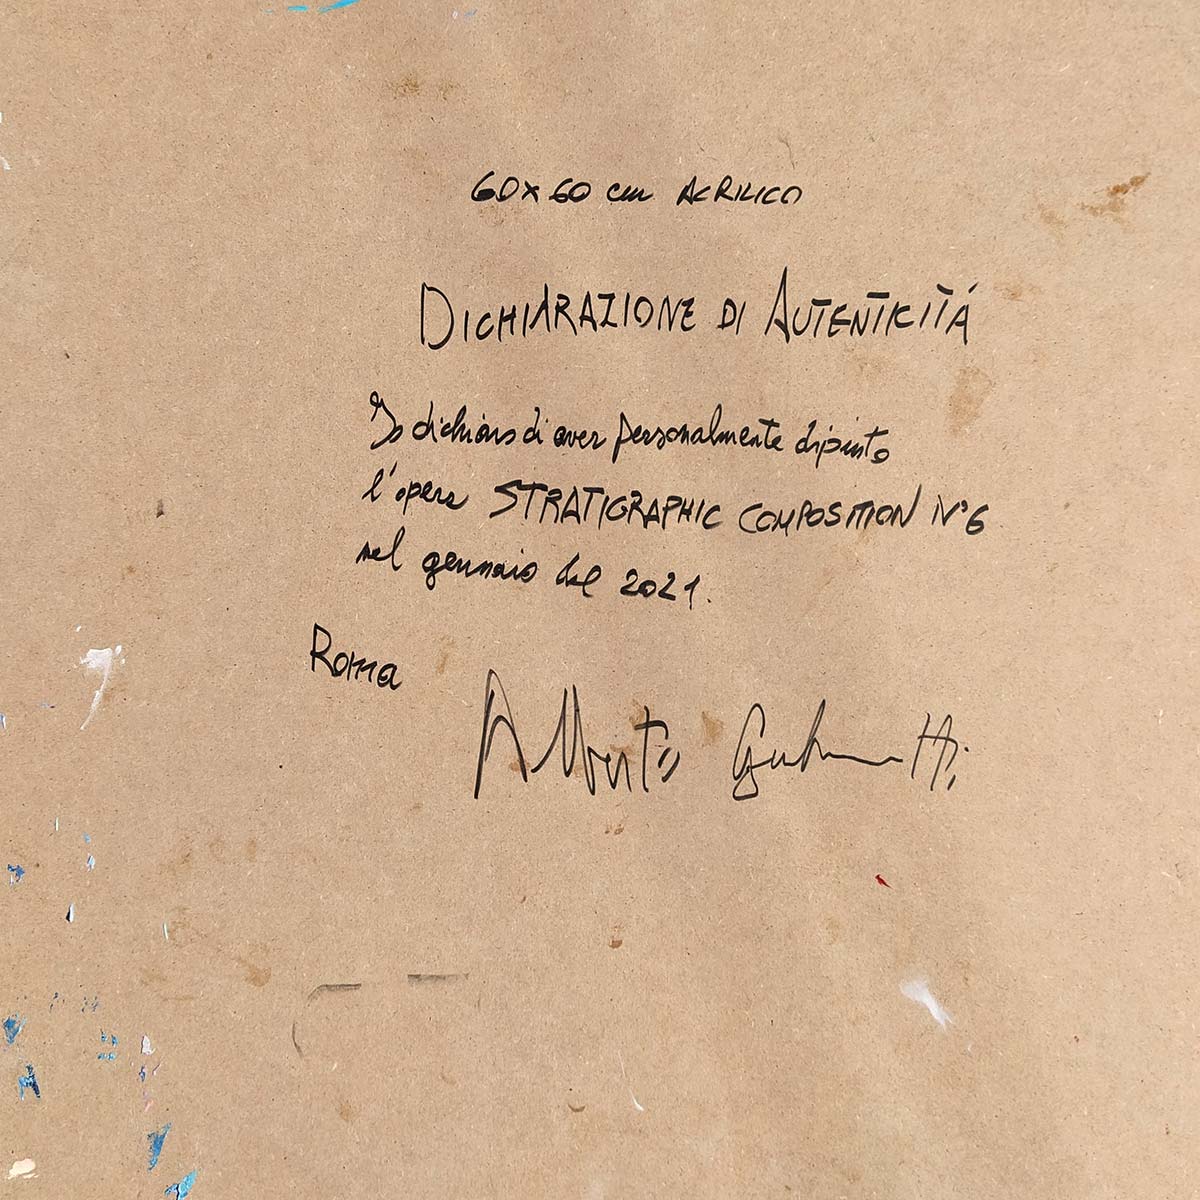 60x60 cm ACRILICO
DICHIARAZIONE DI AUTENTICITÁ
Io dichiaro di aver personalmente dipinto
l'opera STRATIGRAPHIC COMPOSITION N°6
nel gennaio del 2021.
Roma
Alberto